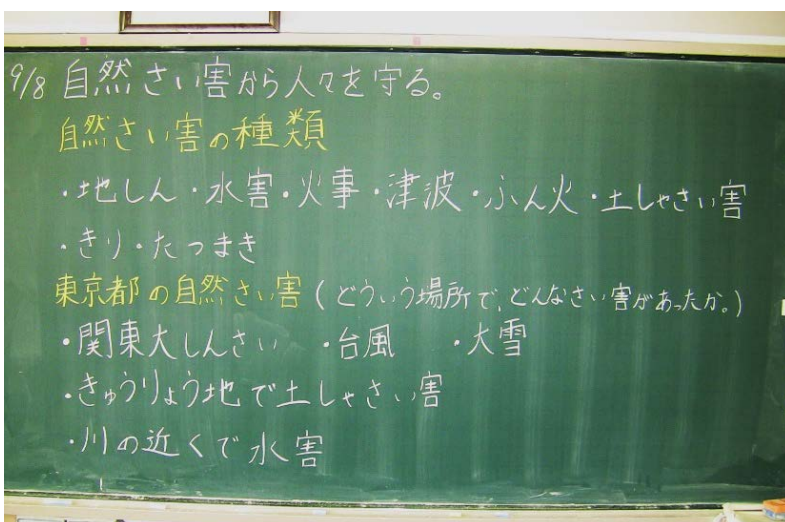 9/8 自然さい害から人々を守る。
自然さい害の種類
・地しん・水害・火事・津波・ふん火・土しゃさい害
・きり・たつまき
東京都の自然さい害(どういう場所で、どんなさい害があったか。)
・関東大しんさい ・台風 ・大雪
・きゅうりょう地で土しゃさい害
・川の近くで水害